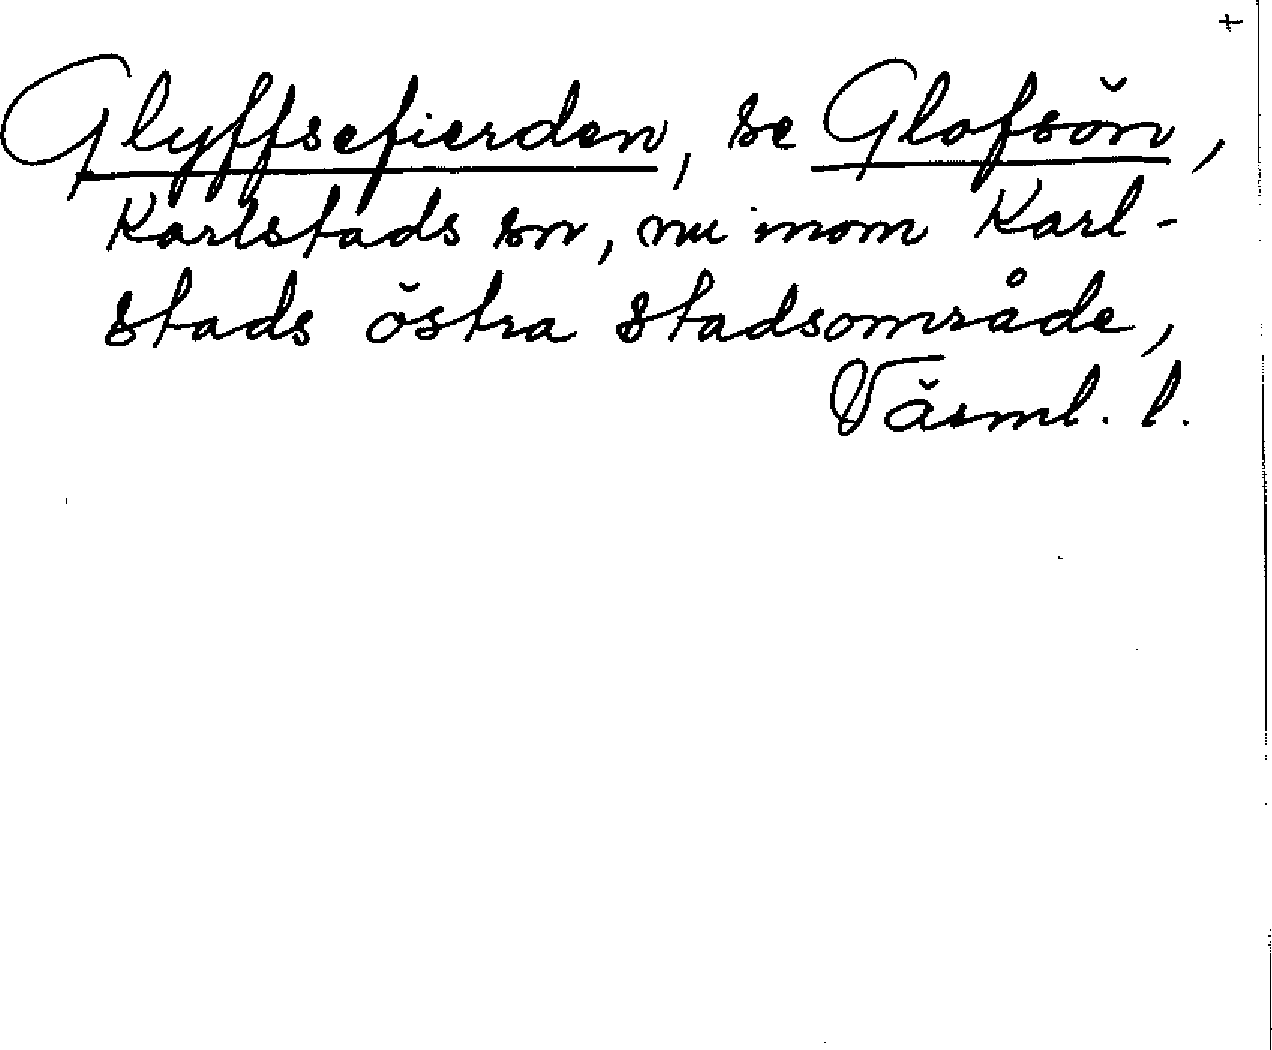 +
Glyffsefierden, se Glofsön,
Karlstads sn, nu inom Karl-
stads östra stadsområde,
Värml. l.